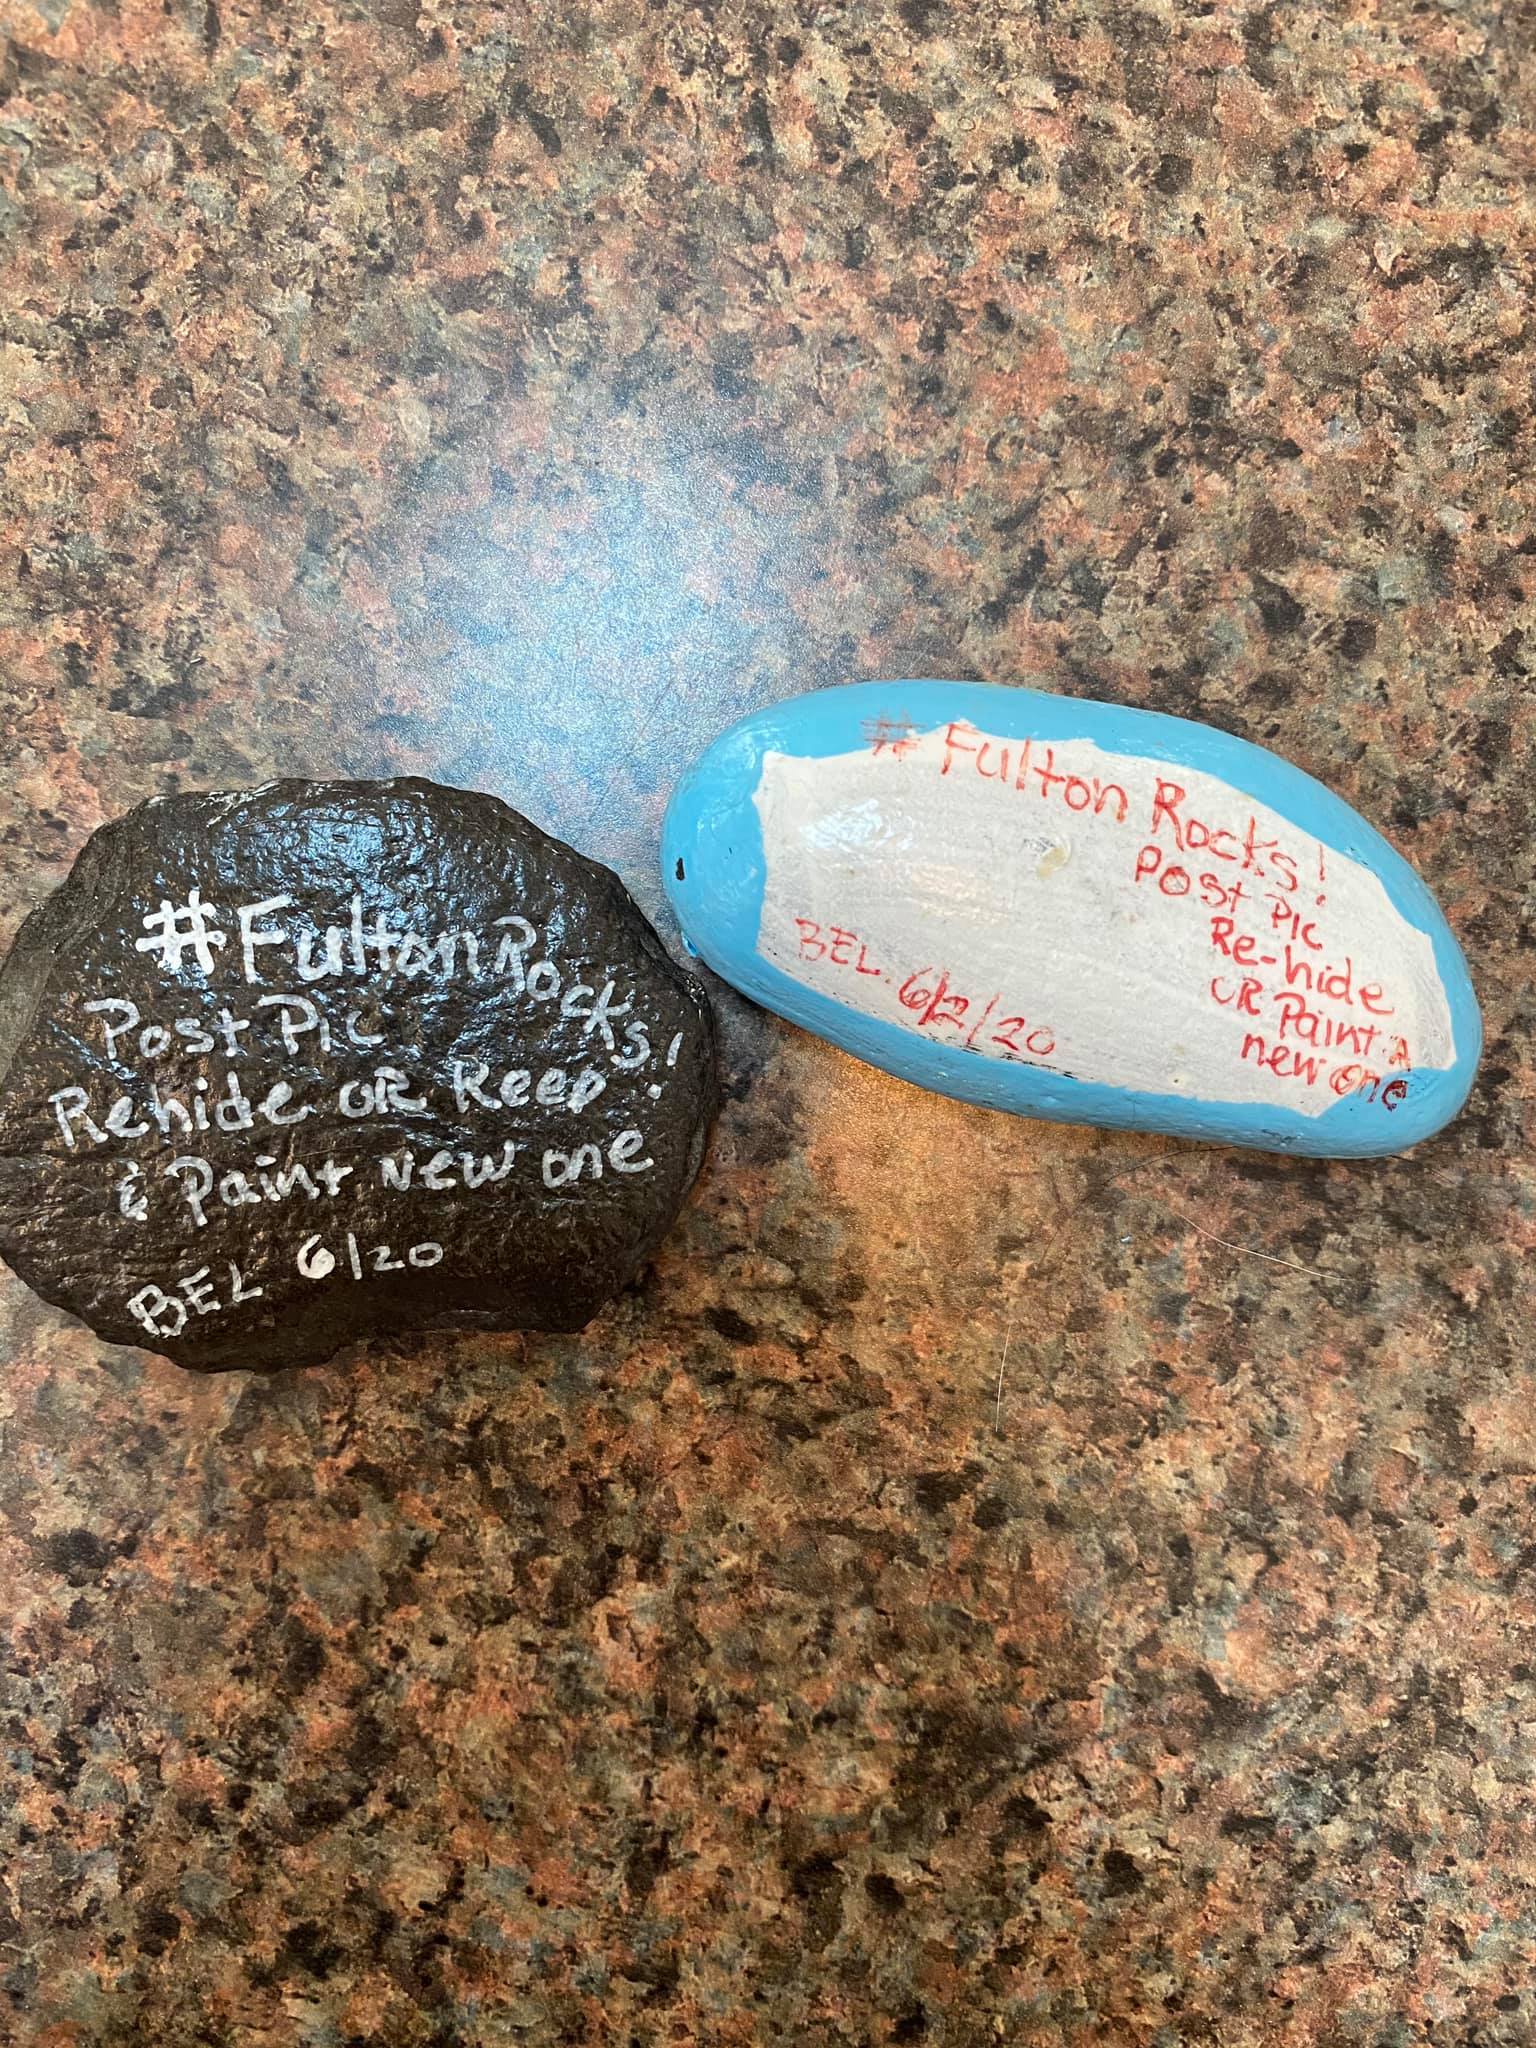 #Fulton Rocks!
Post Pic
Rehide OR Keep
& Paint New one
BEL 6/20
# Fulton Rocks!
Post Pic
Re-hide
OR Paint a
new one
BEL. 6/2/20